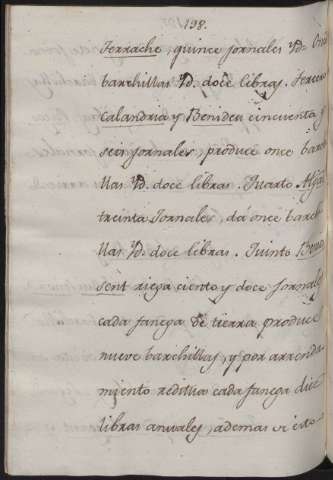 198.
Ferrache, quince jornales
barchillas doce libras. Tercero
Calandria y Benideu cincuenta y
seis jornales, produce once barch
llas doce libras. Quarto
treinta Jornales, da once barch
llas doce libras. Quinto
sent riega ciento y doce jornales
cada fanega de tierra produce
nueve barchillas, y por arrenda
miento reditua cada fanega diez
libras anuales, ademas